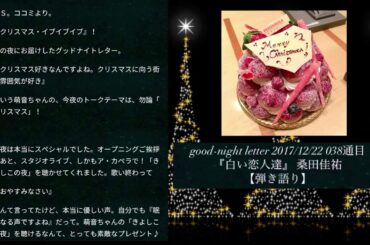 S。ココミより。
クリスマス・イブイブイブ』！
の夜にお届けしたグッドナイトレター。
クリスマス好きなんですよね。クリスマスに向う街
雰囲気が好き』
いう萌音ちゃんの、今夜のトークテーマは、勿論「
リスマス」！
夜は本当にスペシャルでした。オープニングご挨拶
あと、スタジオライブ、しかもア・カペラで！「き
しこの夜」を聴かせてくれました。歌い終わって
おやすみなさい』
んて言ってたけど、本当に優しい声。自分でも『眠
なる声ですよね』だって。萌音ちゃんの「きよしこ
夜」を聴けるなんて、とっても素敵なプレゼント♪
Merry
Christmas
good-night letter 2017/12/22 038通目
『白い恋人達』 桑田佳祐
【弾き語り】